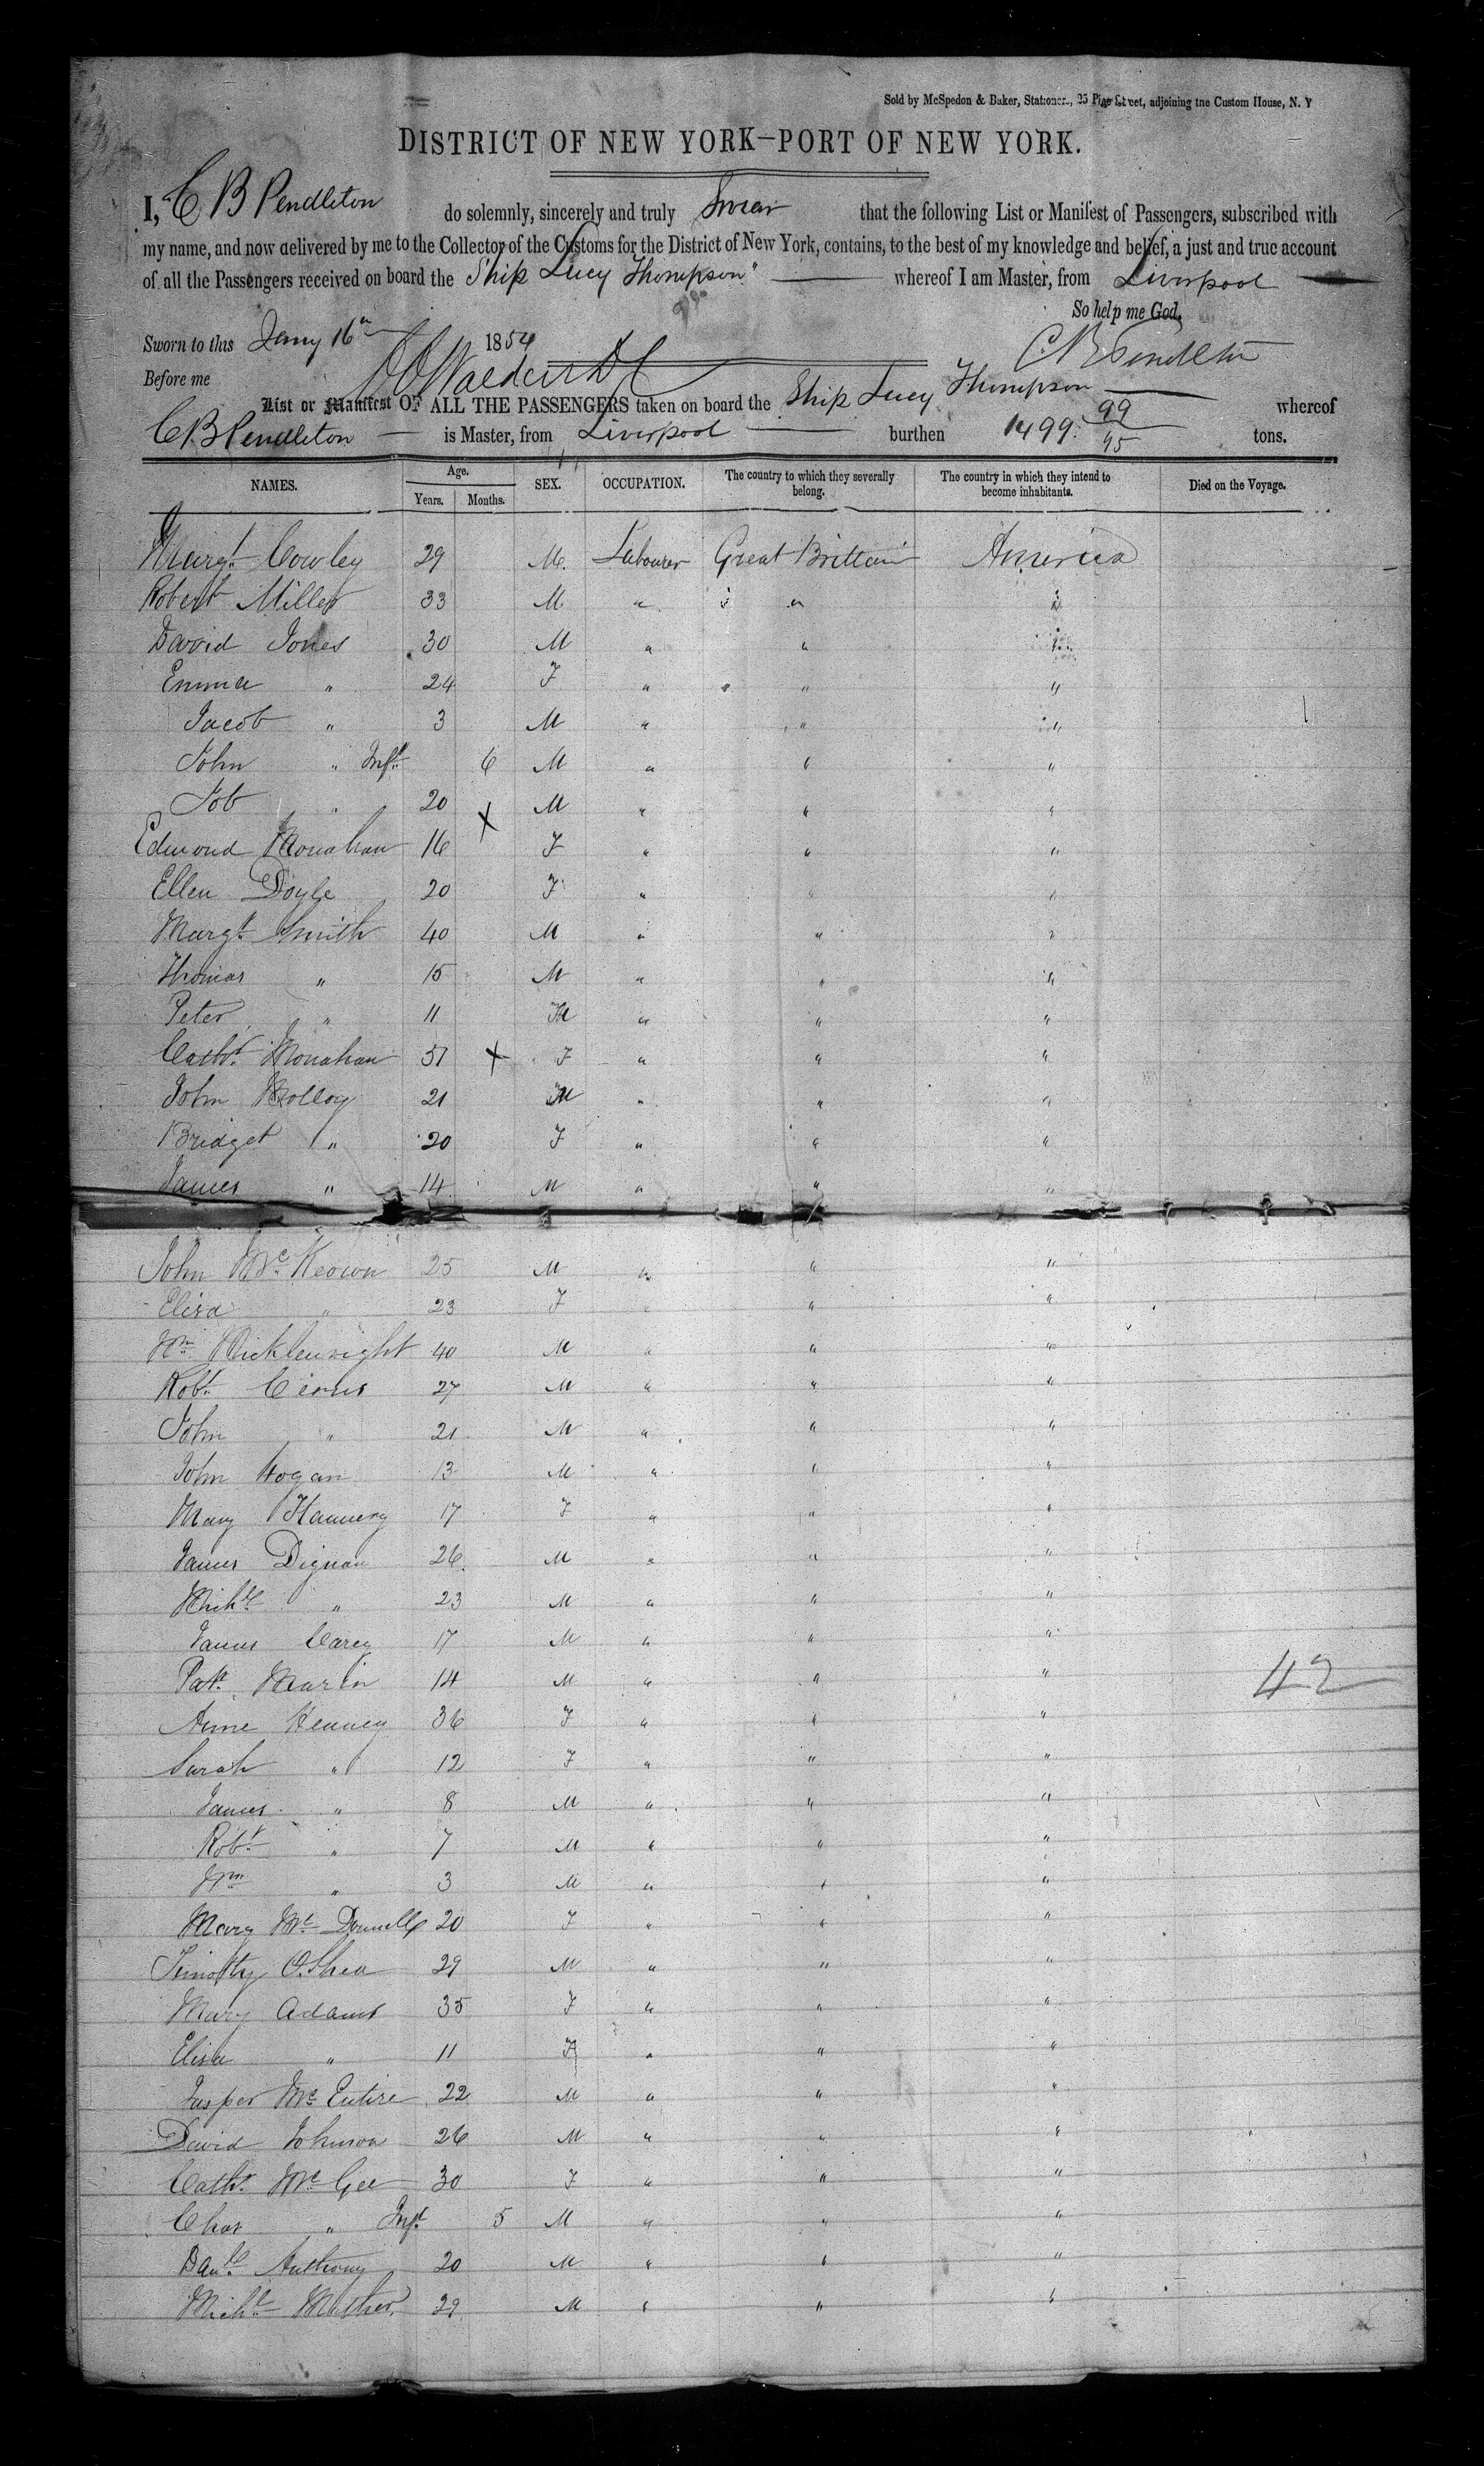 Sold by McSpedon & Baker, Stationers, 25 Pine Street, adjoining the Custom House, N. Y
DISTRICT OF NEW YORK—PORT OF NEW YORK.
I, C B Pendleton do solemnly, sincerely and truly Swear that the following List or Manifest of Passengers, subscribed with
my name, and now delivered by me to the Collector of the Customs for the District of New York, contains, to the best of my knowledge and belief, a just and true account
of all the Passengers received on board the Ship Lucy Thompson" whereof I am Master, from Liverpool
So help me God.
Sworn to this Jany 16th 1854 C. B Pendleton
Before me
List or Manifest OF ALL THE PASSENGERS taken on board the Ship Lucy Thompson whereof
C B Pendleton is Master, from Liverpool burthen 1499 99/95 tons.
NAMES. Age. Years. Months. SEX. OCCUPATION. The country to which they severally belong. The country in which they intend to become inhabitants. Died on the Voyage.
Margt. Cowley 29 M. Labourer Great Brittain America
Robert Miller 33 M " " " "
David Jones 30 M " " "
Emma " 24 F " " "
Jacob " 3 M " " "
John " Inft. 6 M " " "
Job " 20 M " " "
Edmond Monahan 16 X F " " "
Ellen Doyle 20 F " " "
Margt. Smith 40 M " " "
Thomas " 15 M " " "
Peter " 11 M " " "
Cathr. Monahan 51 X F " " "
John Molloy 21 M " " "
Bridget " 20 F " " "
James " 14 M " " "
John Mc Keown 25 M " " "
Elisa " 23 F " " "
Wm Micklewright 40 M " " "
Robt. 27 M " " "
John " 21 M " " "
John Hogan 13 M " " "
Mary Flannery 17 F " " "
James Dignan 26 M " " "
Michl. " 23 M " " "
James Carey 17 M " " "
Patk. Martin 14 M " " "
42
Anne Henney 36 F " " "
Sarah " 12 F " " "
James " 8 M " " "
Robt. " 7 M " " "
Wm " 3 M " " "
Mary Mc Donnell 20 F " " "
Timothy O'Shea 29 M " " "
Mary Adams 35 F " " "
Elisa " 11 F " " "
Jasper Mc Entire 22 M " " "
David Johnson 26 M " " "
Cathr. Mc Gee 30 F " " "
Chas " Inft. 5 M " " "
Danl. Anthony 20 M " " "
Michl. Mather 29 M " " "